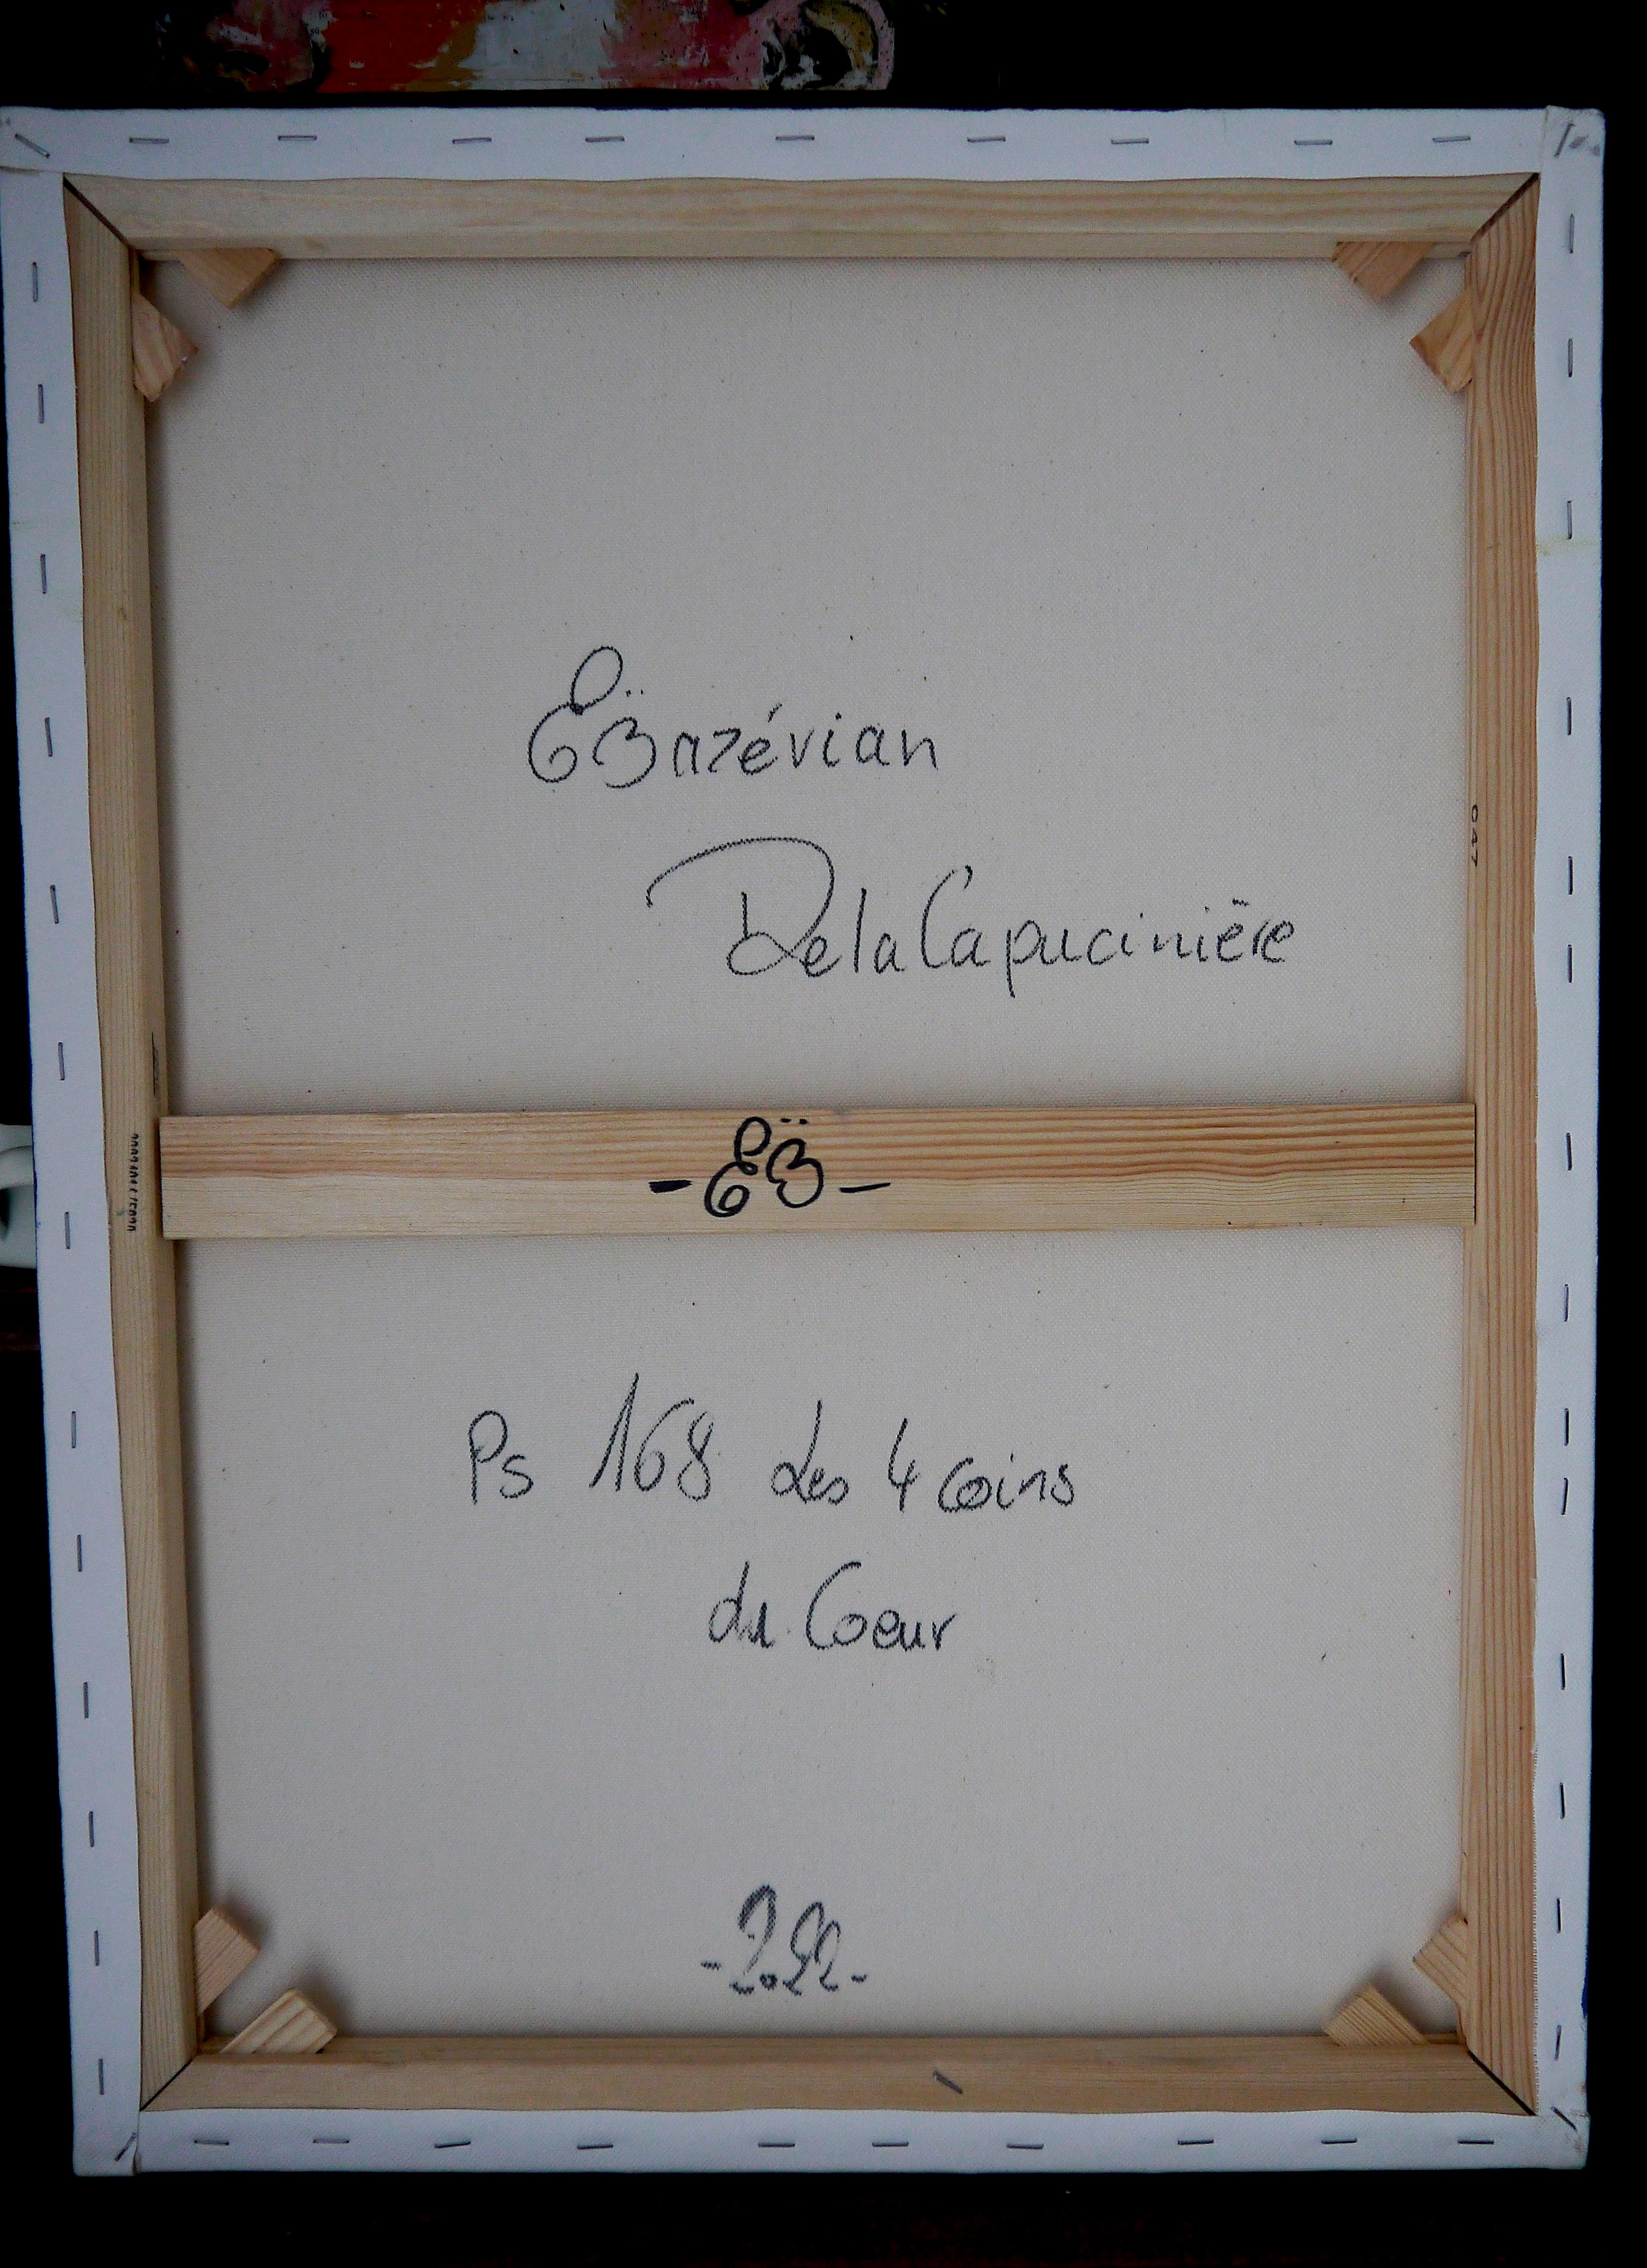 EB̈nzévian
DelaCapucinière
047
-EB̈-
Ps 168 Les 4 coins
du Coeur
-2022-